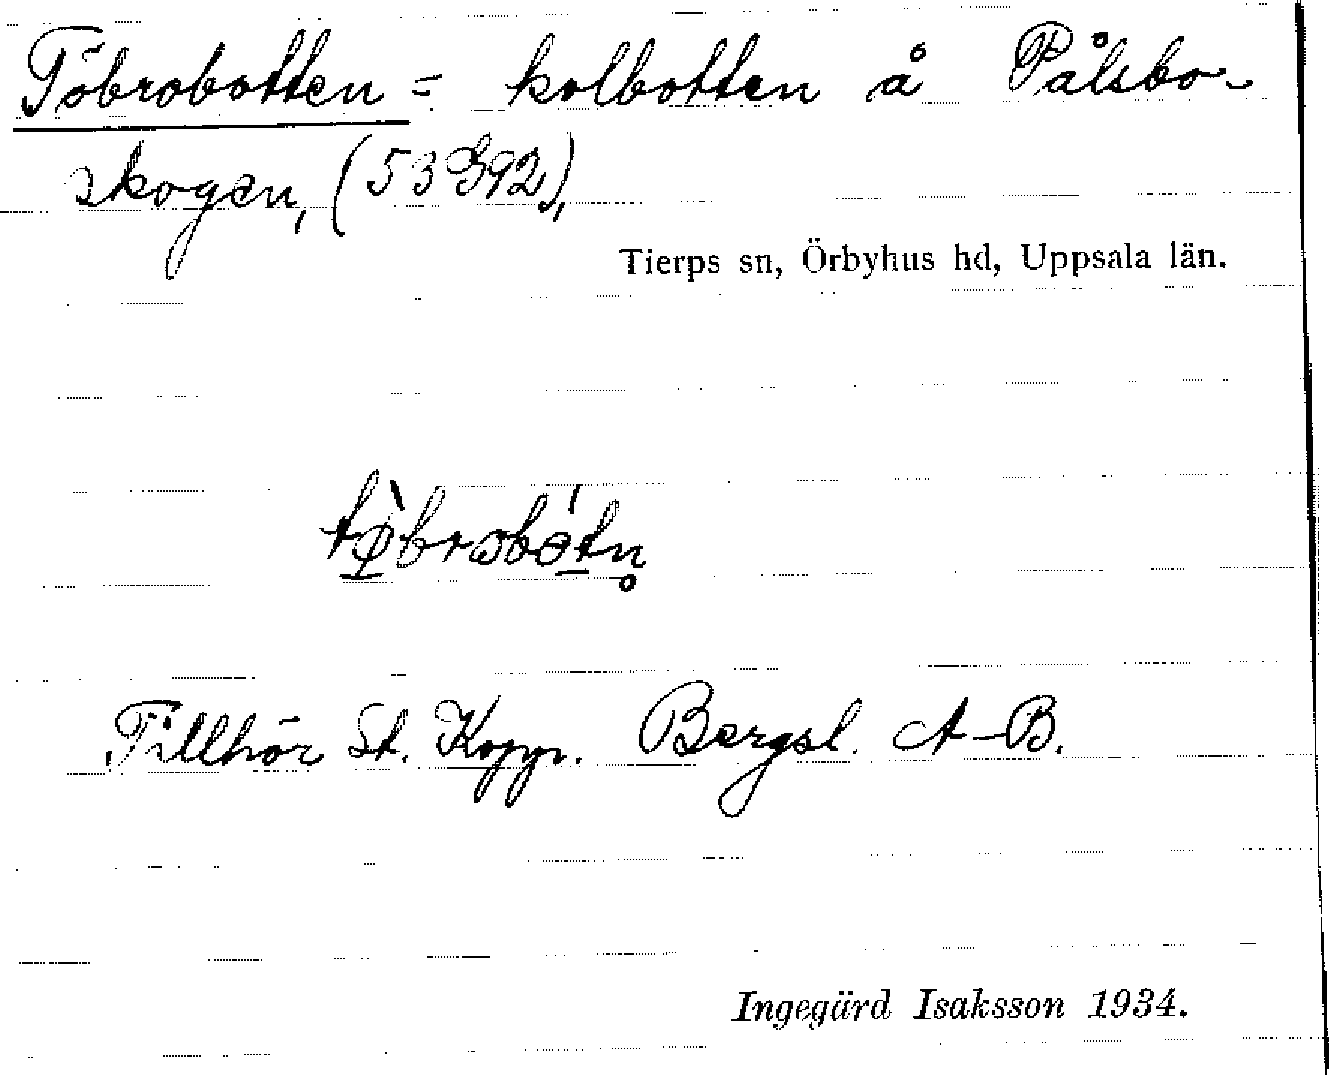 Töbrobotten = kolbotten å Pålsbo-
skogen, (53 G92),
Tierps sn, Örbyhus hd, Uppsala län.
tø̀brobótn̥
Tillhör St. Kopp. Bergsl. A-B.
Ingegärd Isaksson 1934.